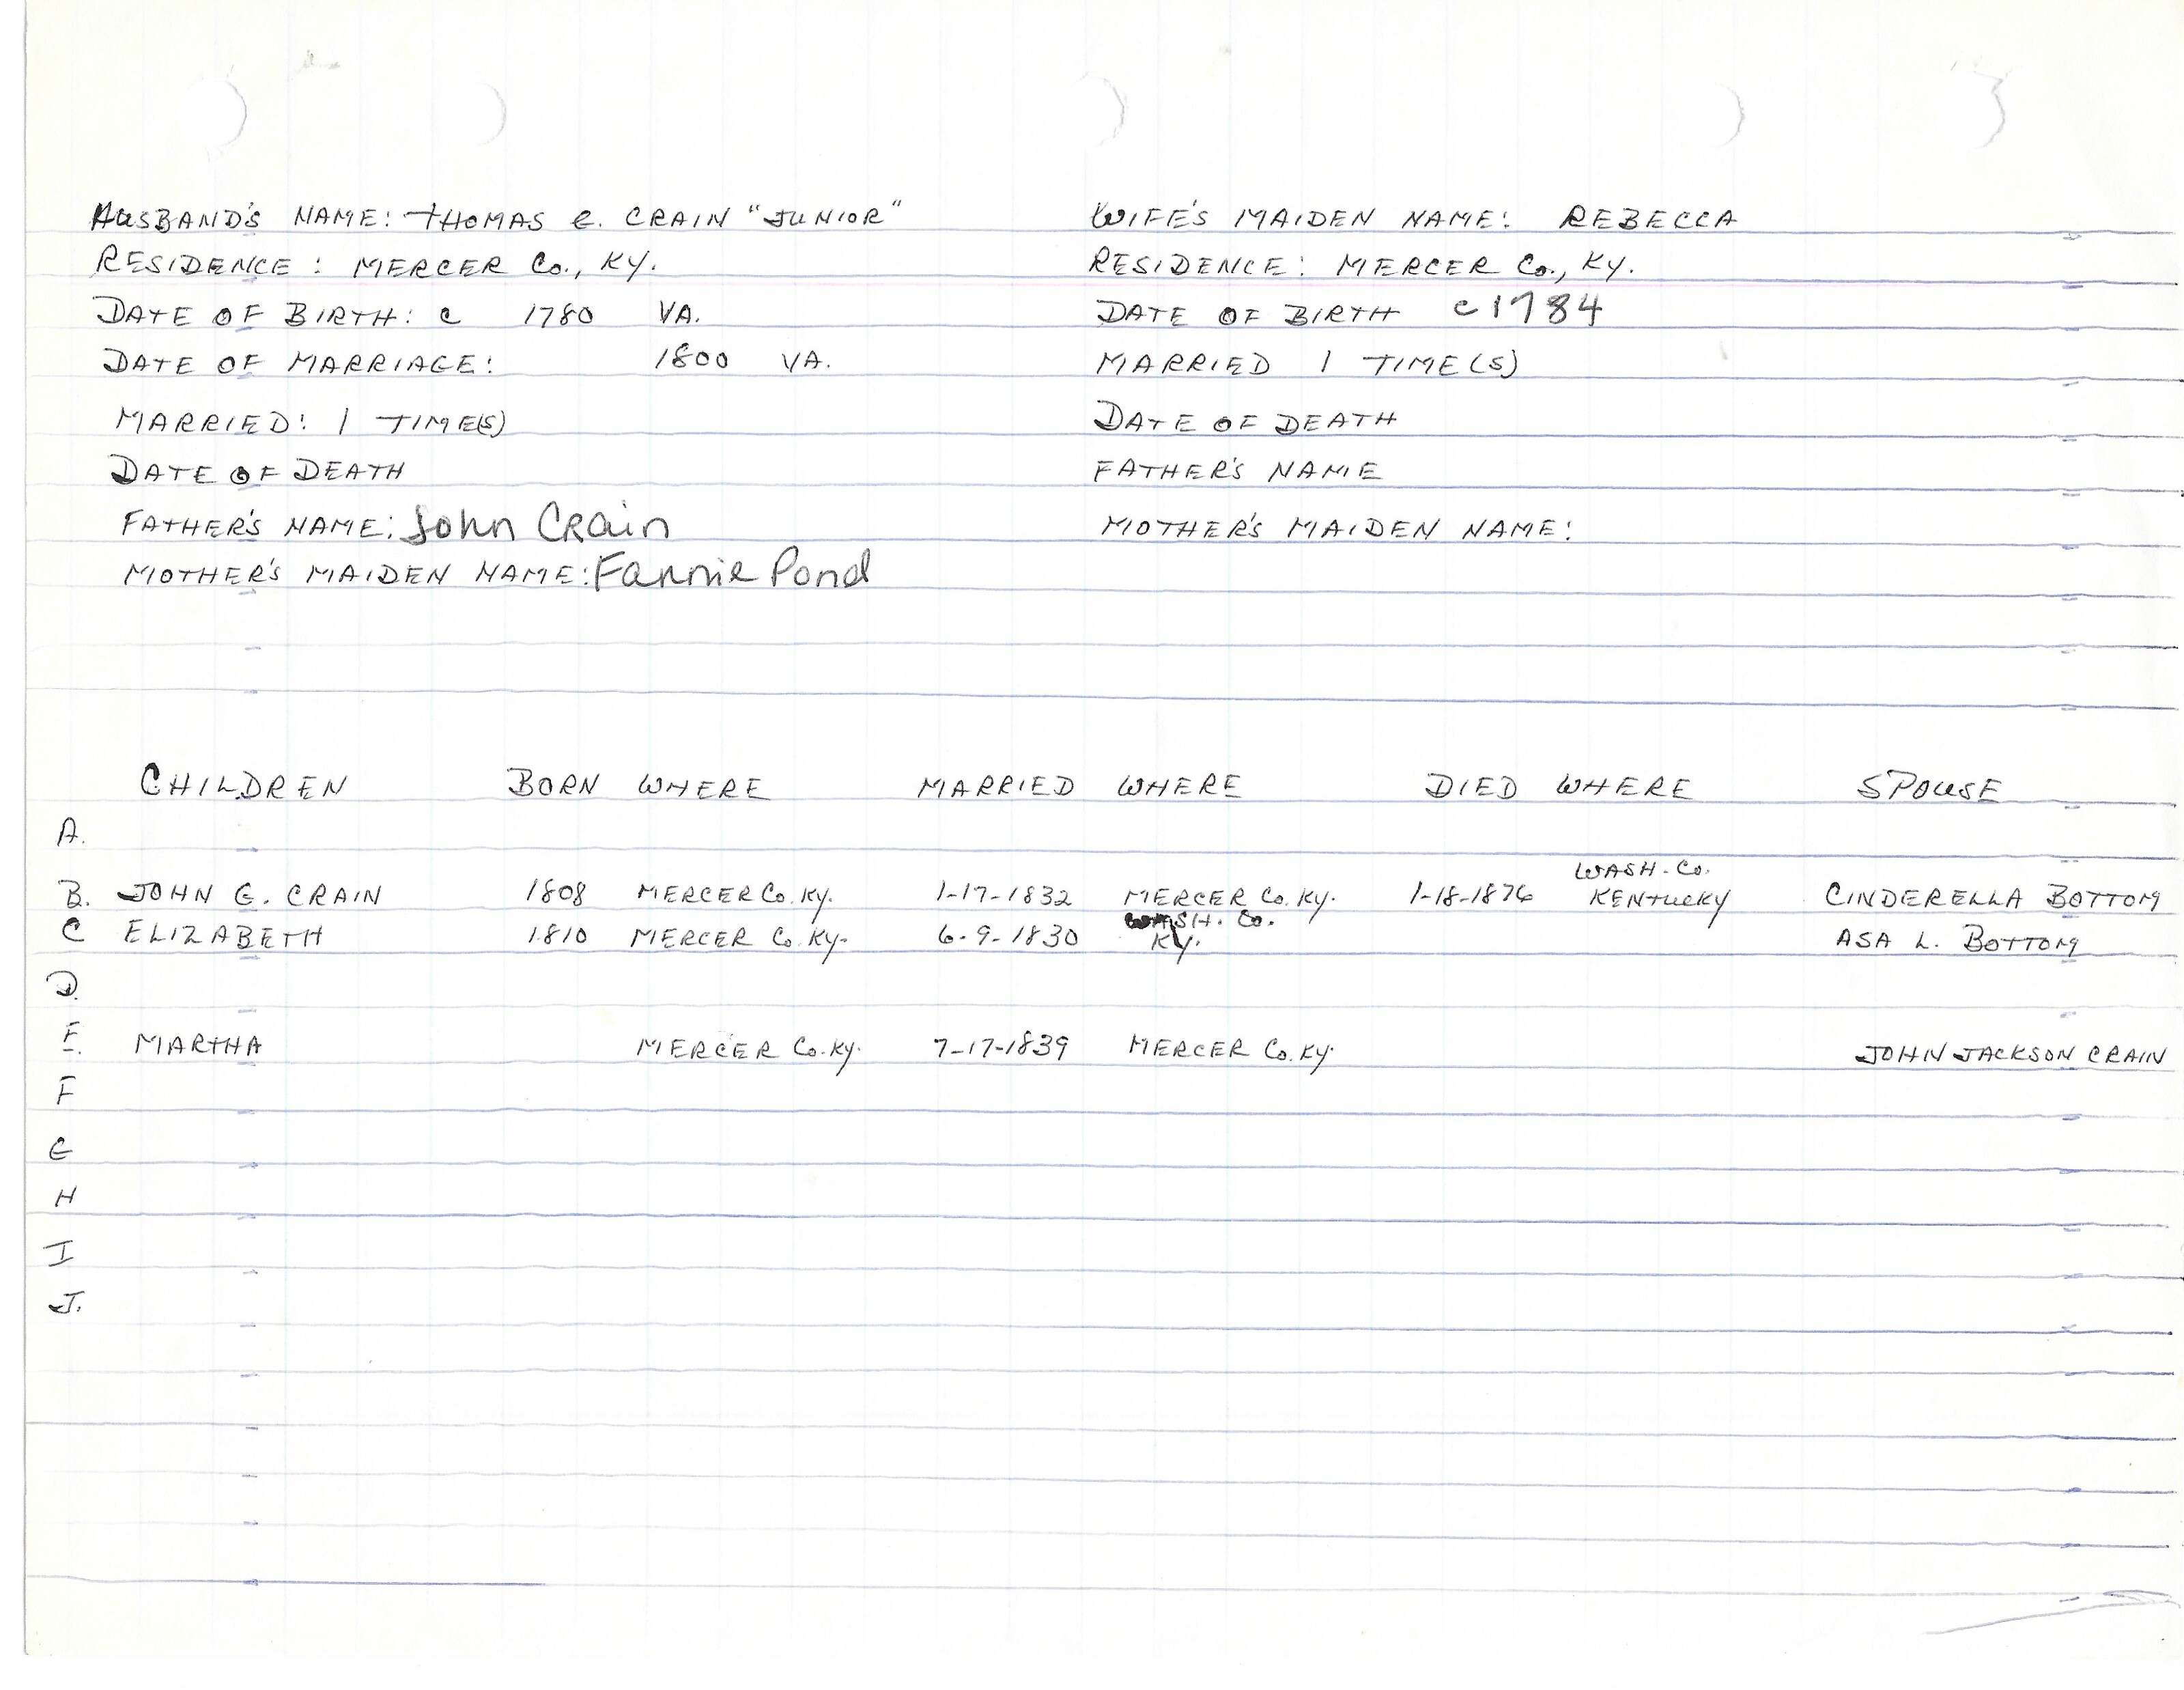 HUSBAND'S NAME: THOMAS G. CRAIN "JUNIOR"
RESIDENCE: MERCER Co., KY.
DATE OF BIRTH: C 1780 VA.
DATE OF MARRIAGE: 1800 VA.
MARRIED: 1 TIME(S)
DATE OF DEATH
FATHER'S NAME: John Crain
MOTHER'S MAIDEN NAME: Fannie Pond
WIFE'S MAIDEN NAME: REBECCA
RESIDENCE: MERCER Co., KY.
DATE OF BIRTH C 1784
MARRIED 1 TIME(S)
DATE OF DEATH
FATHER'S NAME
MOTHER'S MAIDEN NAME:
CHILDREN BORN WHERE MARRIED WHERE DIED WHERE SPOUSE
A.
WASH. Co.
B. JOHN G. CRAIN 1808 MERCER Co. KY. 1-17-1832 MERCER Co. KY. 1-18-1876 KENTUCKY CINDERELLA BOTTOM
WASH. Co.
C ELIZABETH 1810 MERCER Co. KY. 6-9-1830 KY. ASA L. BOTTOM
D.
E. MARTHA MERCER Co. KY. 7-17-1839 MERCER Co. KY. JOHN JACKSON CRAIN
F
G
H
I
J.